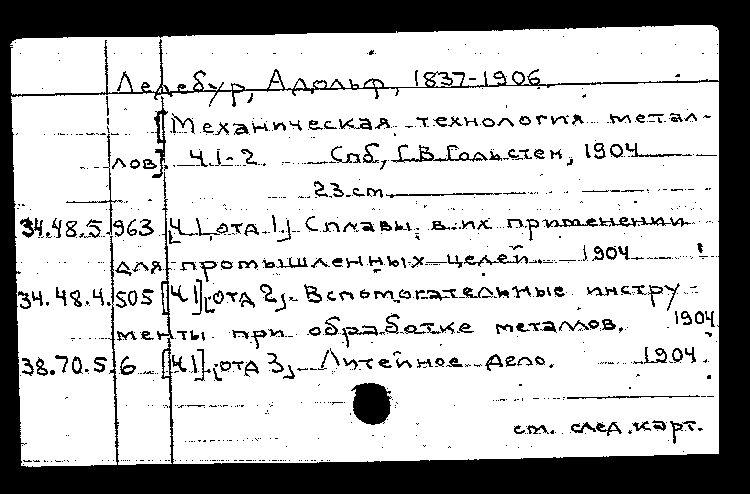 Ледебур, Адольф, 1837-1906.
[Механическая технология метал-
лов]. Ч.1-2. Спб, Г.В.Гольстен, 1904
23 cm.
34.48.5.963 [Ч.1, отд 1] Сплавы в их применении
для промышленных целей. 1904
34.48.4.505 [Ч.1], [отд 2]. Вспомогательные инстру-
менты при обработке металлов. 1904
38.70.5.6 [Ч.1]. [отд 3]. Литейное дело. 1904.
см. след. карт.